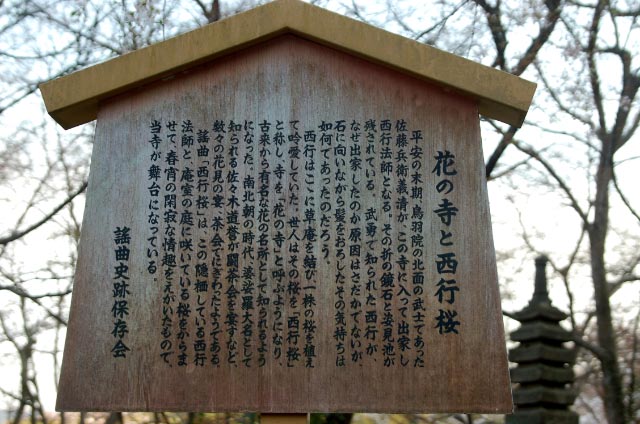 花の寺と西行桜
平安の末期、鳥羽院の北面の武士であった
佐藤兵衛義清が、この寺に入って出家し
西行法師となる。その折の鏡石と姿見池が
残されている。武勇で知られた西行が、
なぜ出家したのか原因はさだかでないが、
石に向いながら髪をおろしたその気持ちは
如何であったのだろう。
西行はここに草庵を結び一株の桜を植え
て吟愛していた。世人はその桜を「西行桜」
と称し、寺を「花の寺」と呼ぶようになり、
古来から有名な花の名所として知られるよう
になった。南北朝の時代、婆娑羅大名として
知られる佐々木道誉が闘茶会を宴すなど、
数々の花見の宴、茶会でにぎわったようである。
謡曲「西行桜」は、この隠栖している西行
法師と、庵室の庭に咲いている桜をからま
せて、春宵の閑寂な情趣をえがいたもので、
当寺が舞台になっている。
謡曲史跡保存会